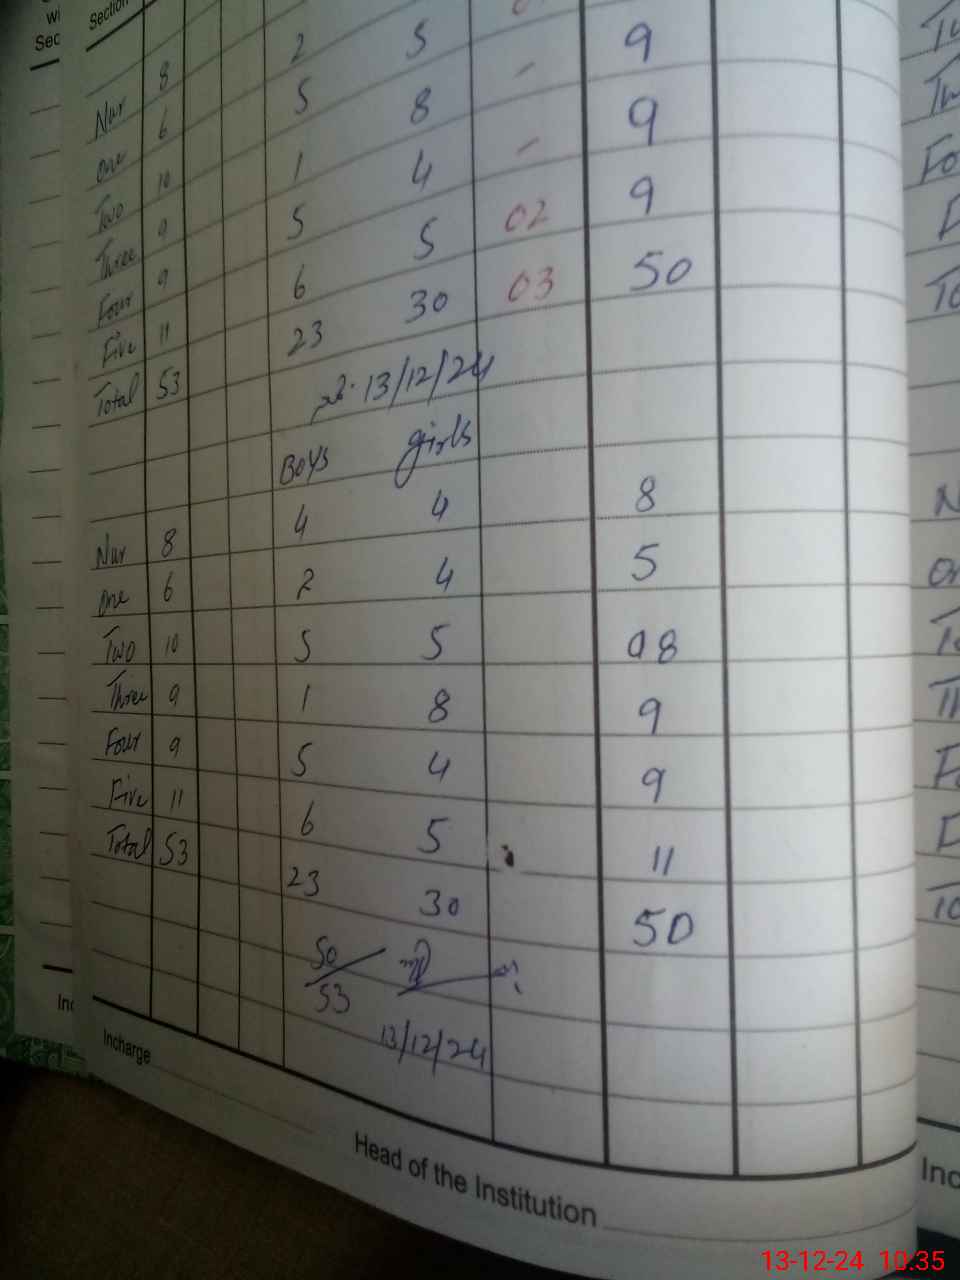 Section
Nur 8
One 6 2
Two 10 5 5
Three 9 1 8 - 9
Four 9 5 4 - 9
Five 11 6 5 02 9
Total 53 23 30 03 50
13/12/24
Boys girls
Nur 8 4 4 8
One 6 2 4 5
Two 10 5 5 08
Three 9 1 8 9
Four 9 5 4 9
Five 11 6 5 11
Total 53 23 30 50
50
53
13/12/24
Incharge
Head of the Institution
13-12-24 10:35